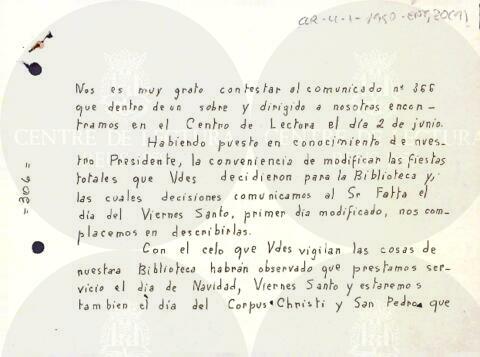 CR-4-1-1950-ENT,20(9)
Nos es muy grato contestar al comunicado nº 366
que dentro de un sobre y dirigido a nosotras encon-
tramos en el Centro de Lectora el día 2 de junio.
Habiendo puesto en conocimiento de nues-
tro Presidente, la conveniencia de modificar las fiestas
totales que Vdes decidieron para la Biblioteca y,
las cuales decisiones comunicamos al Sr Fatta el
día del Viernes Santo, primer dia modificado, nos com-
placemos en describirlas.
Con el celo que Vdes vigilan las cosas de
nuestara Biblioteca habrán observado que prestamos ser-
vicio el dia de Navidad, Viernes Santo y estaremos
tambien el día del Corpus Christi y San Pedro que
=306=
CENTRE DE LECTURA
CENTRE DE LECTURA